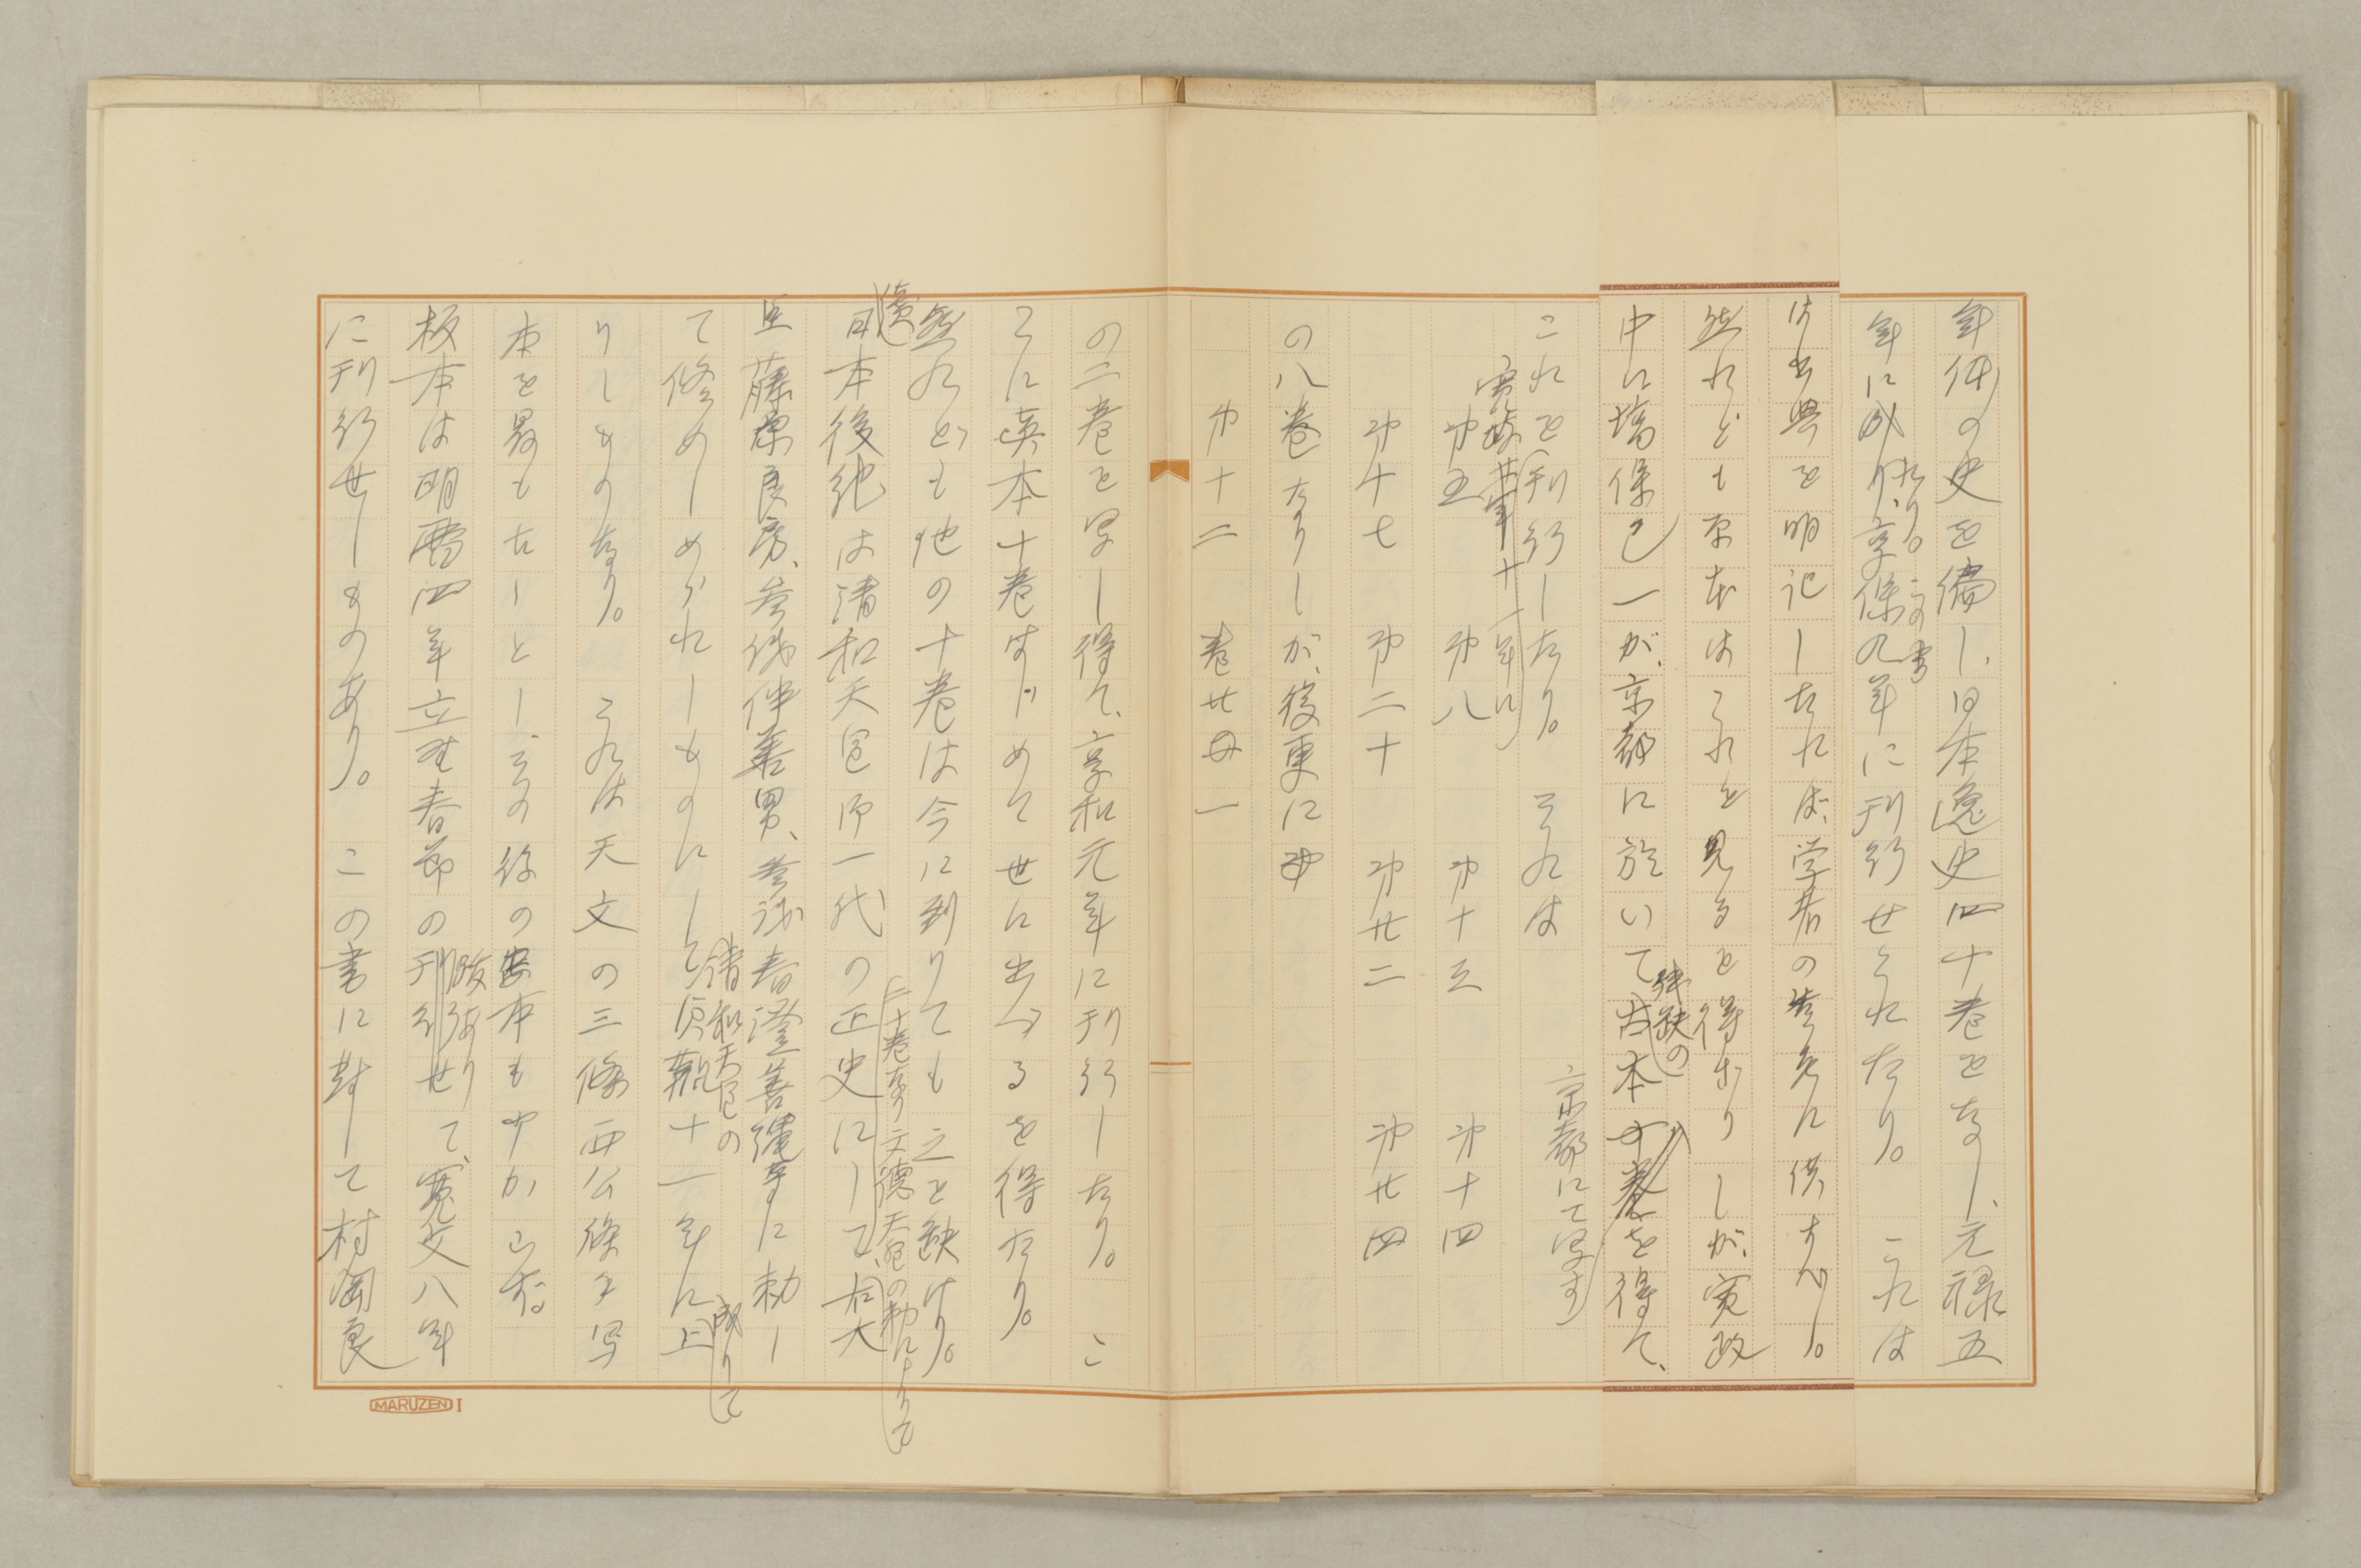 年体の史を備し、日本逸史四十巻をなし、元禄五
年に成れり。この書享保九年に刊行せられたり。これは
出典を明記したれば、学者の参考に供すべし。
然れども原本はこれを見るを得ざりしが、寛政
中に塙保己一が、京都に於いて残缺の古本を得て、
京都にて写す
これを刊行したり。それは
寛政十一年に
第五 第八 第十三 第十四
第十七 第二十 第廿二 第廿四
の八巻なりしが、後更に
第十二 巻廿一
の二巻を写し得て、享和元年に刊行したり。こ
こに真本十巻はじめて世に出づるを得たり。
然れども他の十巻は今に到りても之を缺けり。
二十巻あり文德天皇の勅によりて
續日本後紀は清和天皇御一代の正史にして、右大
臣藤原良房、参議伴善男、参議春澄善縄等に勅し
て修めしめられしものにして、貞觀十一年に上
清和天皇の
成りて
りしものなり。これは天文の三條西公條の写
本を最も古しとし、その後の写本も少からず。
板本は明暦四年立野春節の跋ありて、寛文八年
刊行せり
に刊行せしものあり。この書に対して村岡良
MARUZEN I